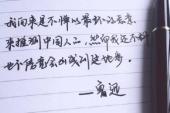 我向来是不惮以最坏的恶意
来推测中国人的，然而我还不料
也不信竟会凶残到这地步。
—鲁迅